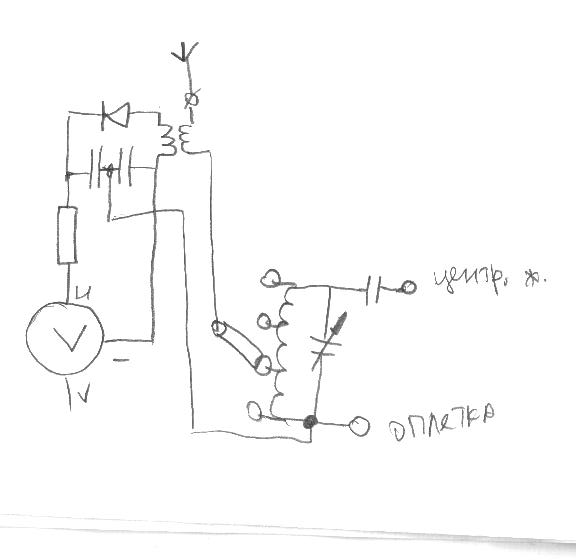 центр. ж.
И
V
–
1V
оплетка